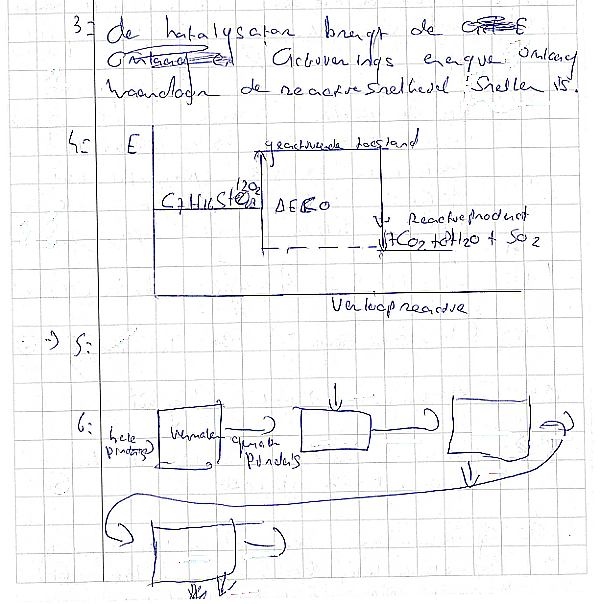 3= de katalysator brengt de
activerings energie omlaag
waardoor de reactiesnelheid sneller is.
4= E
geactiveerde toestand
C7H16S + 12O2
ΔE<O
Reactieproduct
7CO2 + 8H2O + SO2
Verloop reactie
-> 5:
6: hele pinda's
vermalen
gemalen pinda's